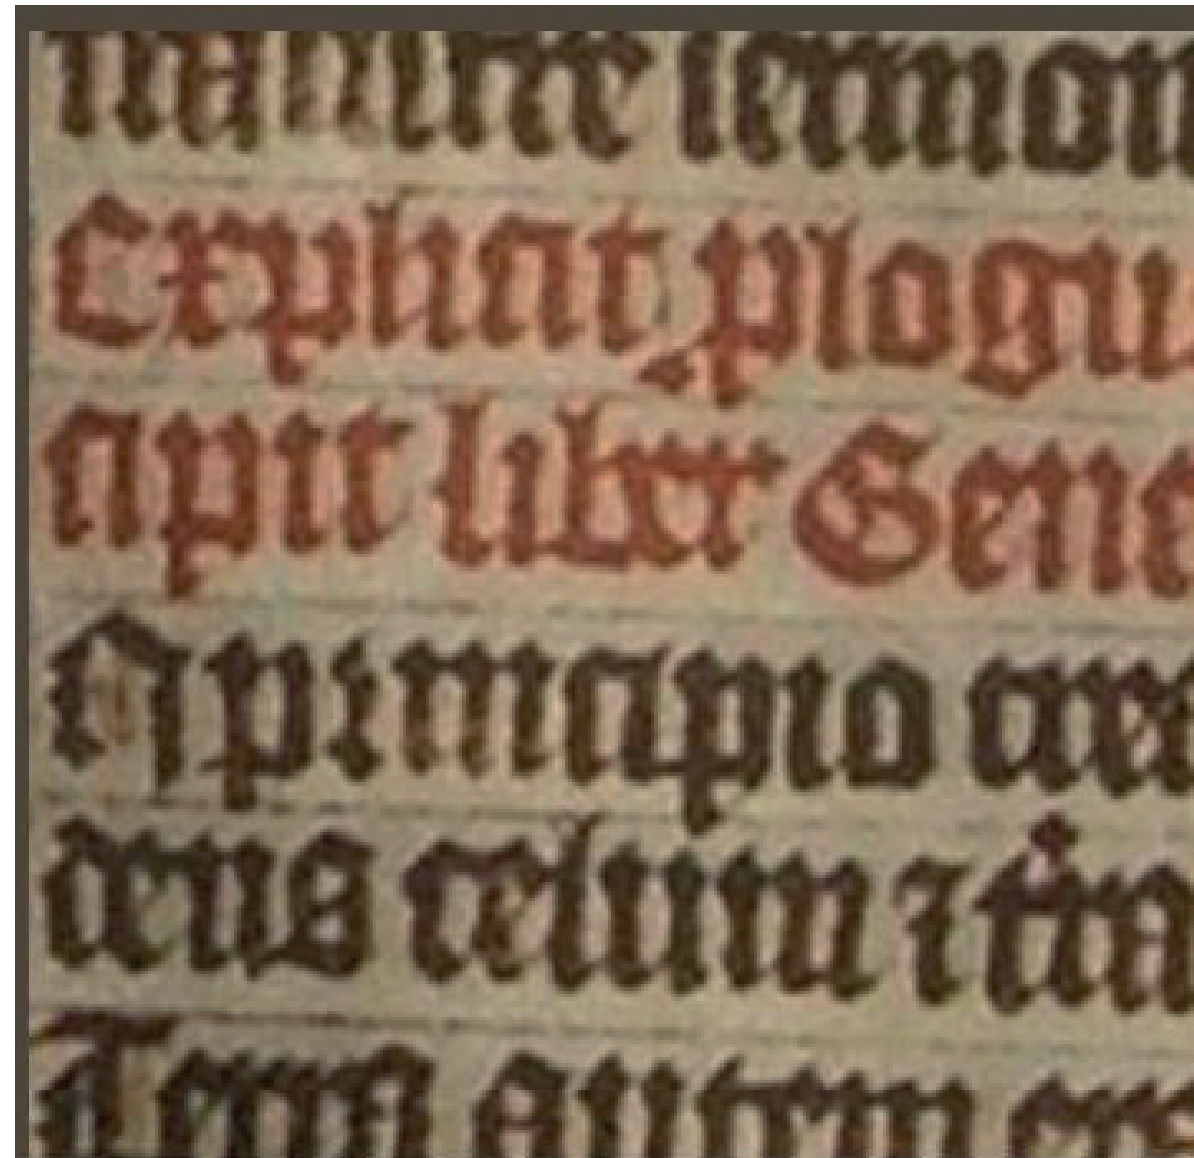 sermon
Explicit ꝓlogu
cipit liber Gene
N principio crea
deus celum ⁊ tͥra
Terra autem era